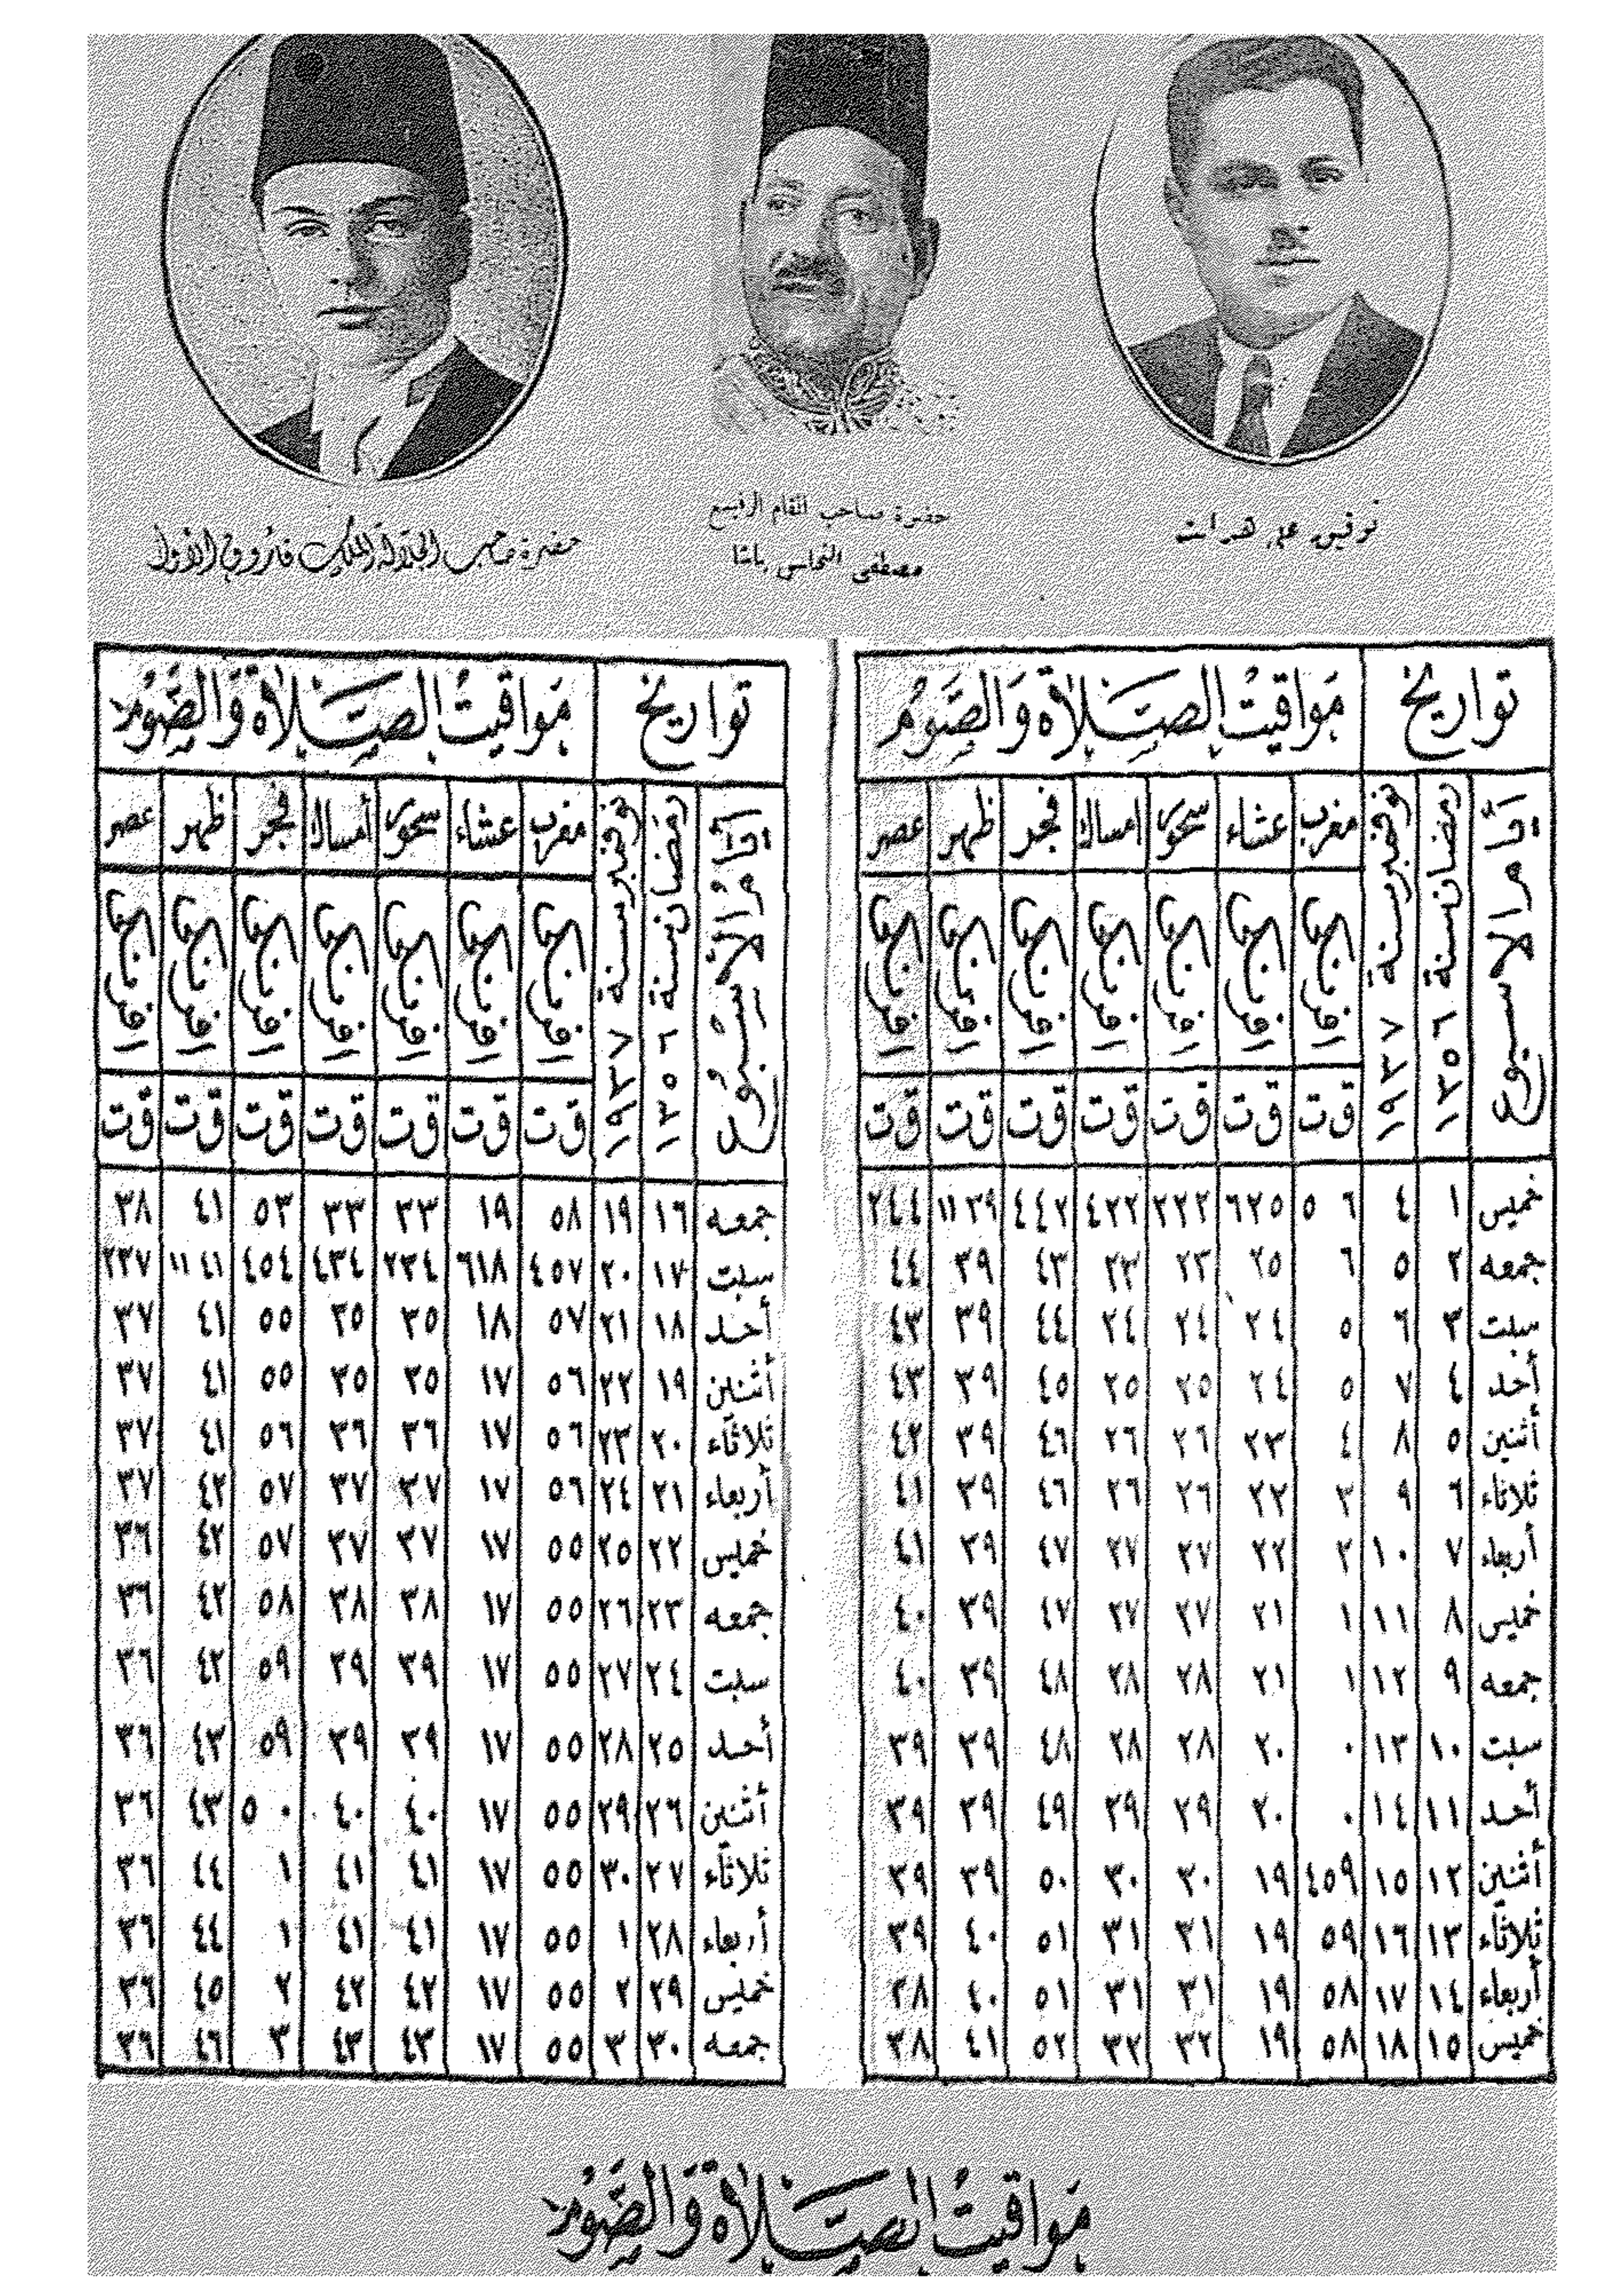 حضرة صاحب الجلالة الملك فاروق الأول
حضرة صاحب المقام الرفيع
مصطفى النحاس باشا
توفيق على هدات
تواريخ مَواقيتُ الصَّلاة وَالصَّوم
أيام الأسبوع رمضان سنة ١٣٥٦ نوفمبر سنة ١٩٣٧ مغرب عشاء سحور امساك فجر ظهر عصر
افرنجى افرنجى افرنجى افرنجى افرنجى افرنجى افرنجى
ق ت ق ت ق ت ق ت ق ت ق ت ق ت
خميس ١ ٤ ٦ ٥ ٢٥ ٦ ٢٢ ٢ ٢٢ ٤ ٤٢ ٤ ٣٩ ١١ ٤٤ ٢
جمعه ٢ ٥ ٦ ٢٥ ٢٣ ٢٣ ٤٣ ٣٩ ٤٤
سبت ٣ ٦ ٥ ٢٤ ٢٤ ٢٤ ٤٤ ٣٩ ٤٣
أحد ٤ ٧ ٥ ٢٤ ٢٥ ٢٥ ٤٥ ٣٩ ٤٣
أثنين ٥ ٨ ٤ ٢٣ ٢٦ ٢٦ ٤٦ ٣٩ ٤٢
ثلاثاء ٦ ٩ ٣ ٢٢ ٢٦ ٢٦ ٤٦ ٣٩ ٤١
أربعاء ٧ ١٠ ٢ ٢٢ ٢٧ ٢٧ ٤٧ ٣٩ ٤١
خميس ٨ ١١ ١ ٢١ ٢٧ ٢٧ ٤٧ ٣٩ ٤٠
جمعه ٩ ١٢ ١ ٢١ ٢٨ ٢٨ ٤٨ ٣٩ ٤٠
سبت ١٠ ١٣ ٠ ٢٠ ٢٨ ٢٨ ٤٨ ٣٩ ٣٩
أحد ١١ ١٤ ٠ ٢٠ ٢٩ ٢٩ ٤٩ ٣٩ ٣٩
أثنين ١٢ ١٥ ٥٩ ٤ ١٩ ٣٠ ٣٠ ٥٠ ٣٩ ٣٩
ثلاثاء ١٣ ١٦ ٥٩ ١٩ ٣١ ٣١ ٥١ ٤٠ ٣٩
أربعاء ١٤ ١٧ ٥٨ ١٩ ٣١ ٣١ ٥١ ٤٠ ٣٨
خميس ١٥ ١٨ ٥٨ ١٩ ٣٢ ٣٢ ٥٢ ٤١ ٣٨
تواريخ مَواقيتُ الصَّلاة وَالصَّوم
أيام الأسبوع رمضان سنة ١٣٥٦ نوفمبر سنة ١٩٣٧ مغرب عشاء سحور أمساك فجر ظهر عصر
افرنجى افرنجى افرنجى افرنجى افرنجى افرنجى افرنجى
ق ت ق ت ق ت ق ت ق ت ق ت ق ت
جمعه ١٦ ١٩ ٥٨ ١٩ ٣٣ ٣٣ ٥٣ ٤١ ٣٨
سبت ١٧ ٢٠ ٥٧ ٤ ١٨ ٦ ٣٤ ٢ ٣٤ ٤ ٥٤ ٤ ٤١ ١١ ٣٧ ٢
أحد ١٨ ٢١ ٥٧ ١٨ ٣٥ ٣٥ ٥٥ ٤١ ٣٧
أثنين ١٩ ٢٢ ٥٦ ١٧ ٣٥ ٣٥ ٥٥ ٤١ ٣٧
ثلاثاء ٢٠ ٢٣ ٥٦ ١٧ ٣٦ ٣٦ ٥٦ ٤١ ٣٧
أربعاء ٢١ ٢٤ ٥٦ ١٧ ٣٧ ٣٧ ٥٧ ٤٢ ٣٧
خميس ٢٢ ٢٥ ٥٥ ١٧ ٣٧ ٣٧ ٥٧ ٤٢ ٣٦
جمعه ٢٣ ٢٦ ٥٥ ١٧ ٣٨ ٣٨ ٥٨ ٤٢ ٣٦
سبت ٢٤ ٢٧ ٥٥ ١٧ ٣٩ ٣٩ ٥٩ ٤٢ ٣٦
أحد ٢٥ ٢٨ ٥٥ ١٧ ٣٩ ٣٩ ٥٩ ٤٣ ٣٦
أثنين ٢٦ ٢٩ ٥٥ ١٧ ٤٠ ٤٠ ٠ ٥ ٤٣ ٣٦
ثلاثاء ٢٧ ٣٠ ٥٥ ١٧ ٤١ ٤١ ١ ٤٤ ٣٦
أربعاء ٢٨ ١ ٥٥ ١٧ ٤١ ٤١ ١ ٤٤ ٣٦
خميس ٢٩ ٢ ٥٥ ١٧ ٤٢ ٤٢ ٢ ٤٥ ٣٦
جمعه ٣٠ ٣ ٥٥ ١٧ ٤٣ ٤٣ ٣ ٤٦ ٣٦
مَواقيتُ الصَّلاة وَالصَّوم